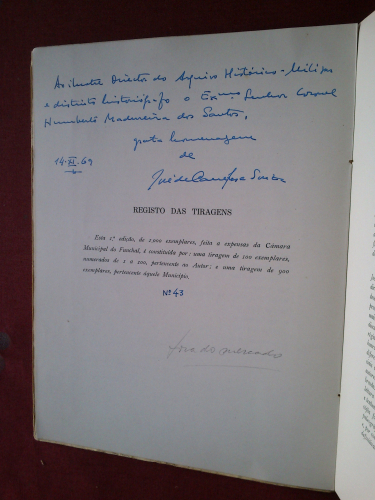 Ao ilustre Director do Arquivo Histórico-Militar
e distinto historiógrafo o Exmo. Senhor Coronel
Humberto Madeira dos Santos,
grata homenagem
de
14-XI-69
REGISTO DAS TIRAGENS
Esta 1.ª edição, de 1.000 exemplares, feita a expensas da Câmara
Municipal do Funchal, é constituída por: uma tiragem de 100 exemplares,
numerados de 1 a 100, pertencente ao Autor; e uma tiragem de 900
exemplares, pertencente àquele Município.
Nº 43
fora do mercado